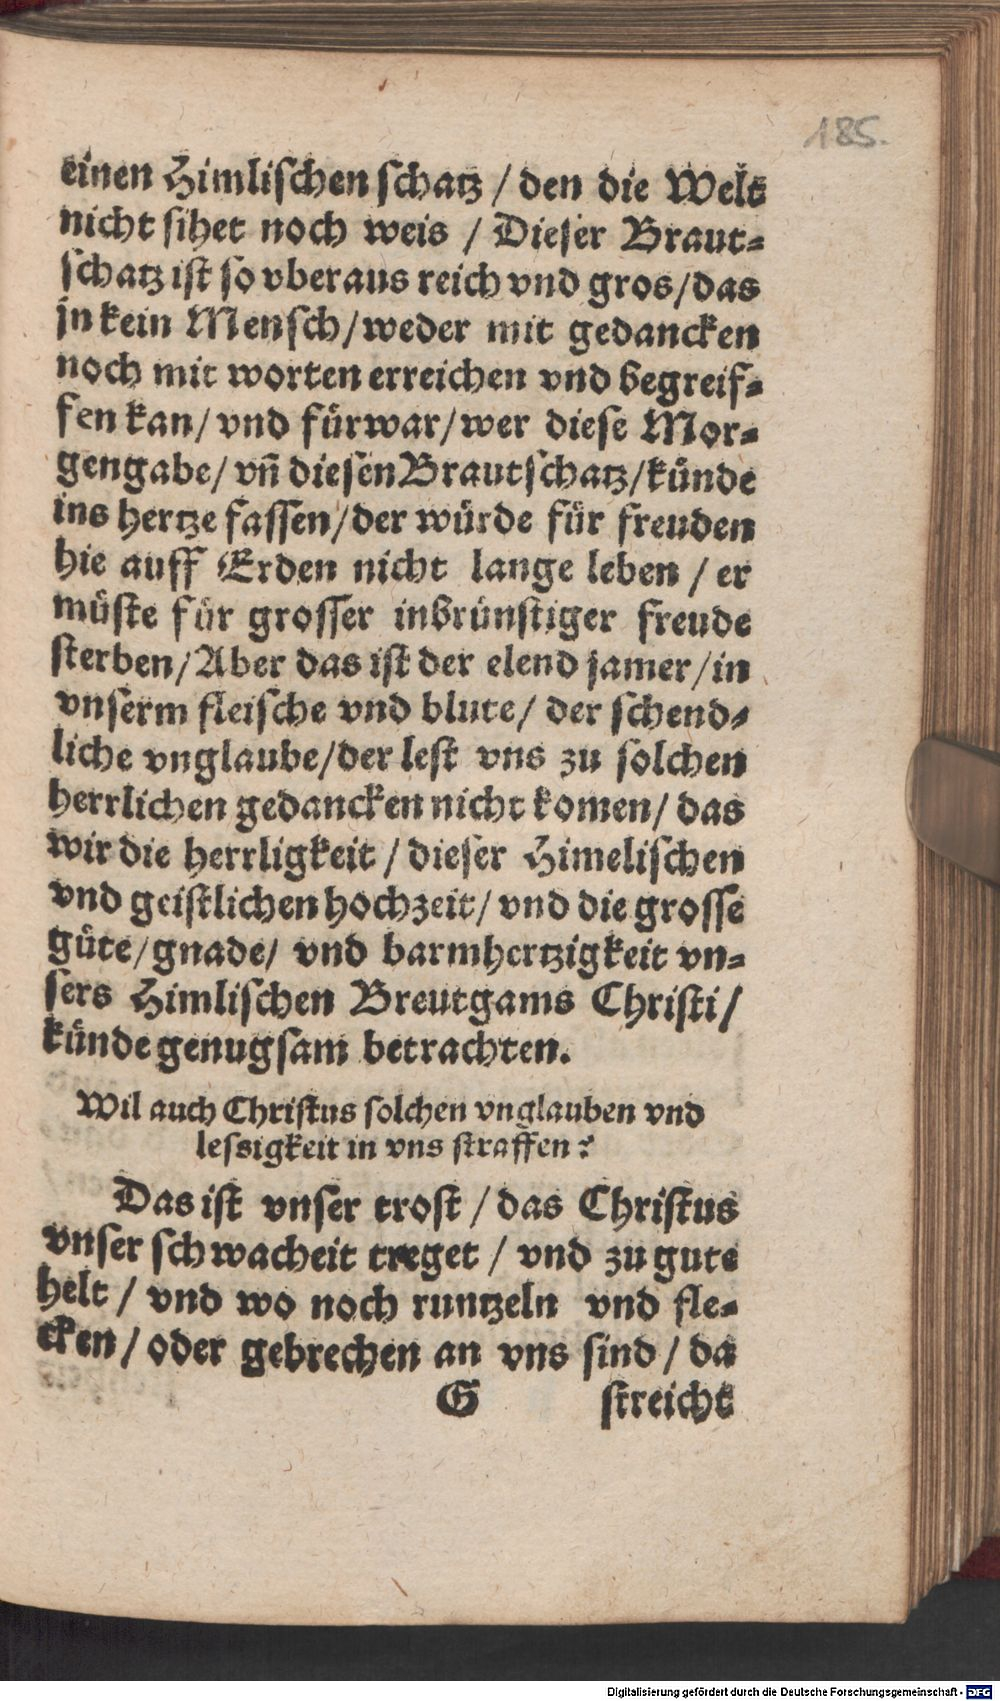 185.
einen Himlischen schatz / den die Welt
nicht sihet noch weis / Dieser Braut-
schatz ist so vberaus reich vnd gros/das
jn kein Mensch/weder mit gedancken
noch mit worten erreichen vnd begreif-
fen kan/ vnd fürwar/wer diese Mor-
gengabe/ vñ diesen Brautschatz/künde
ins hertze fassen/der würde für freuden
hie auff Erden nicht lange leben / er
müste für grosser inbrünstiger freude
sterben/Aber das ist der elend jamer/in
vnserm fleische vnd blute/ der schend-
liche vnglaube/der lest vns zu solchen
herrlichen gedancken nicht komen/ das
wir die herrligkeit / dieser Himelischen
vnd geistlichen hochzeit/ vnd die grosse
güte/gnade/ vnd barmhertzigkeit vn-
sers Himlischen Breutgams Christi/
künde genugsam betrachten.
Wil auch Christus solchen vnglauben vnd
lessigkeit in vns straffen?
Das ist vnser trost / das Christus
vnser schwacheit treget / vnd zu gute
helt / vnd wo noch runtzeln vnd fle-
cken / oder gebrechen an vns sind / da
G streicht
Digitalisierung gefördert durch die Deutsche Forschungsgemeinschaft - DFG